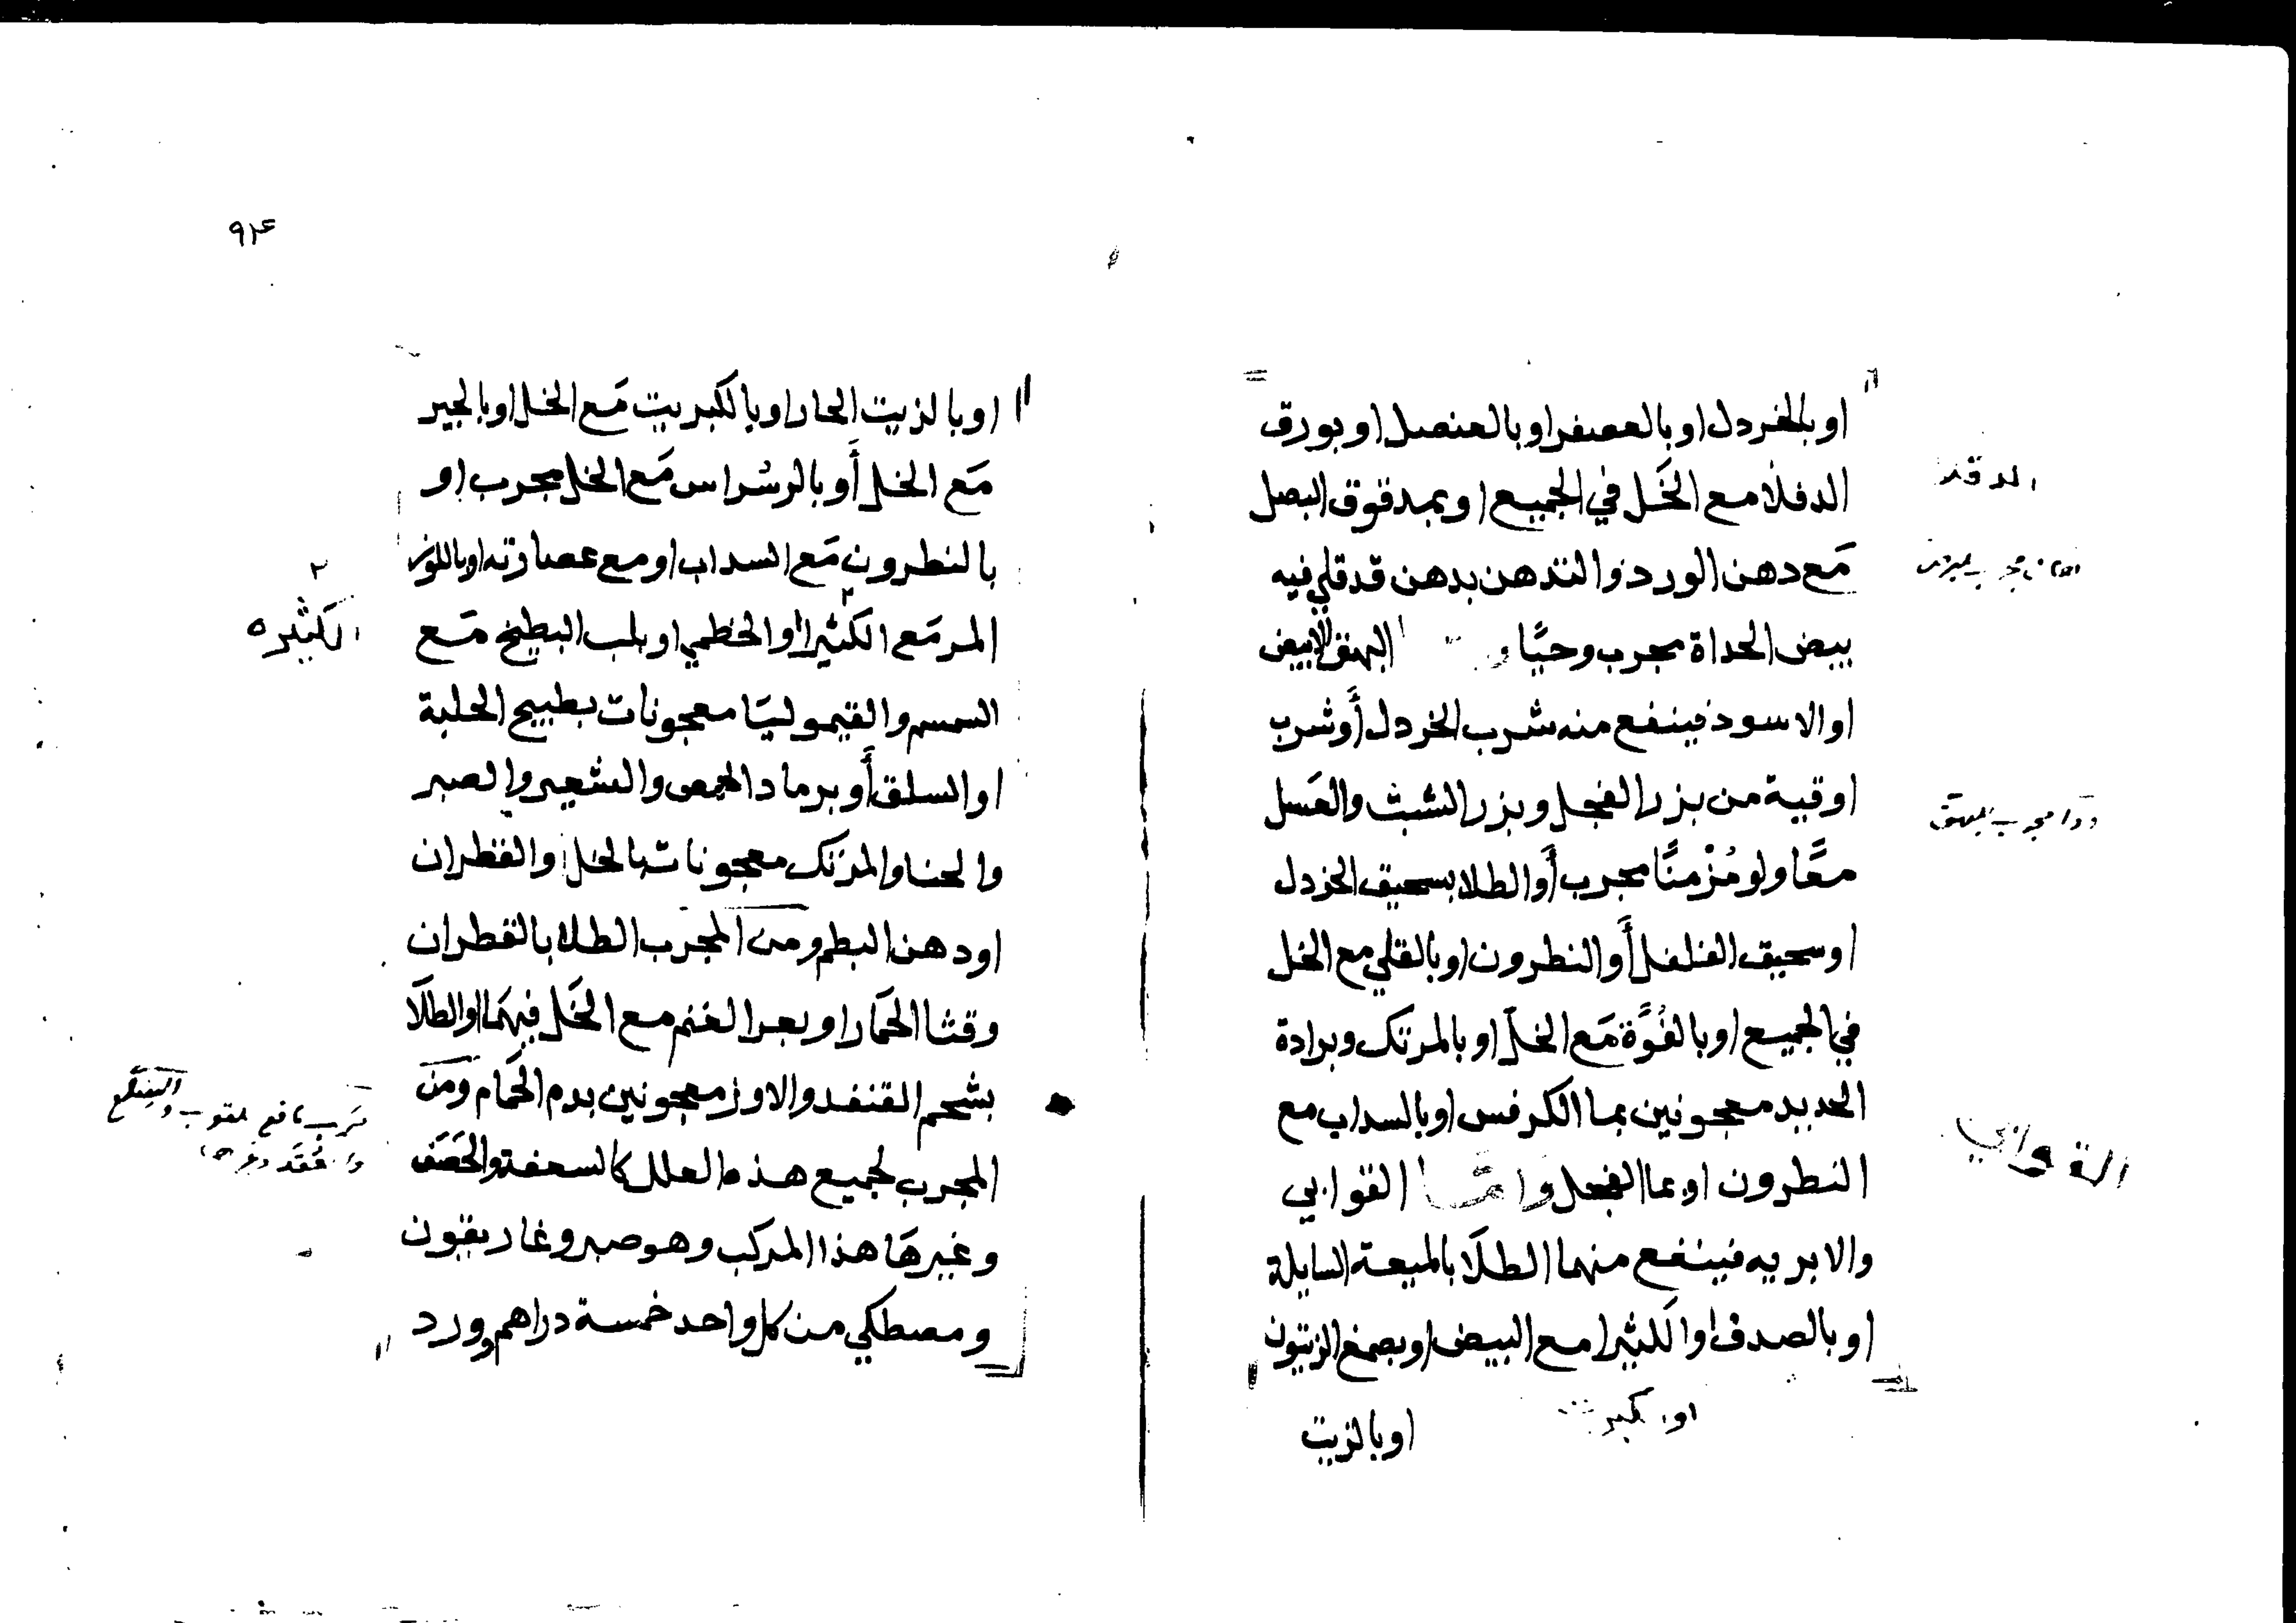 او بالخردل او بالعصفر او بالعنصل او بورق
الدفلا مع الخَل في الجميع او بمدقوق البصل
مَع دهن الورد والتدهن بدهن قد قلي فيه
بيض الحداة مجرب وحيًا البهق الابيض
او الاسود فينفع منه شرب الخردل أَو شرب
اوقية من بزر الفجل وبزر الشبث والعَسل
معًا ولو مُزْمنًا مجرب أَو الطلا بسحيق الخردل
او سحيق الفلفل أَو النطرون او بالقلي مع الخل
في الجميع او بالفُوَّة مَع الخل او بالمرتك وبرادة
الحديد معجونين بما الكرفس او بالسداب مع
النطرون او بما الفجل وامَّا القوابي
والابريه فينفع منهما الطلَا بالميعة السايلة
او بالصدف او الكثيرا مع البيض او بصمغ الزيتون
او بالزيت
القوابي
٩٣
او بالزيت الحار او بالكبريت مَع الخل او بالجير
مَع الخل أَو بالرسُراس مَع الخل مجرب او
بالنطرون مَع السداب او مع عصارته او باللوز
المر مَع الكثيرا او الخطمي او بلب البطيخ مَع
السمسم والقيموليَا معجونات بطبيخ الحلبة
او السلق أَو برماد الحمص والشعير والصبر
والحنا والمرتك معجونات بالخل والقطران
او دهن البطم ومن المجرب الطلا بالقطران
وقثا الحمَار او بعر الغنم مع الخَل فيهمَا او الطلَا
بشحم القنفد والاوز معجونين بدم الحمَام ومَن
المجرب لجميع هذه العلل كالسعفة والحَصَف
وغيرهَا هذا المركب وهو صبر وغاريقون
ومصطكي من كل واحد خمسة دراهم وورد
الكَثيره